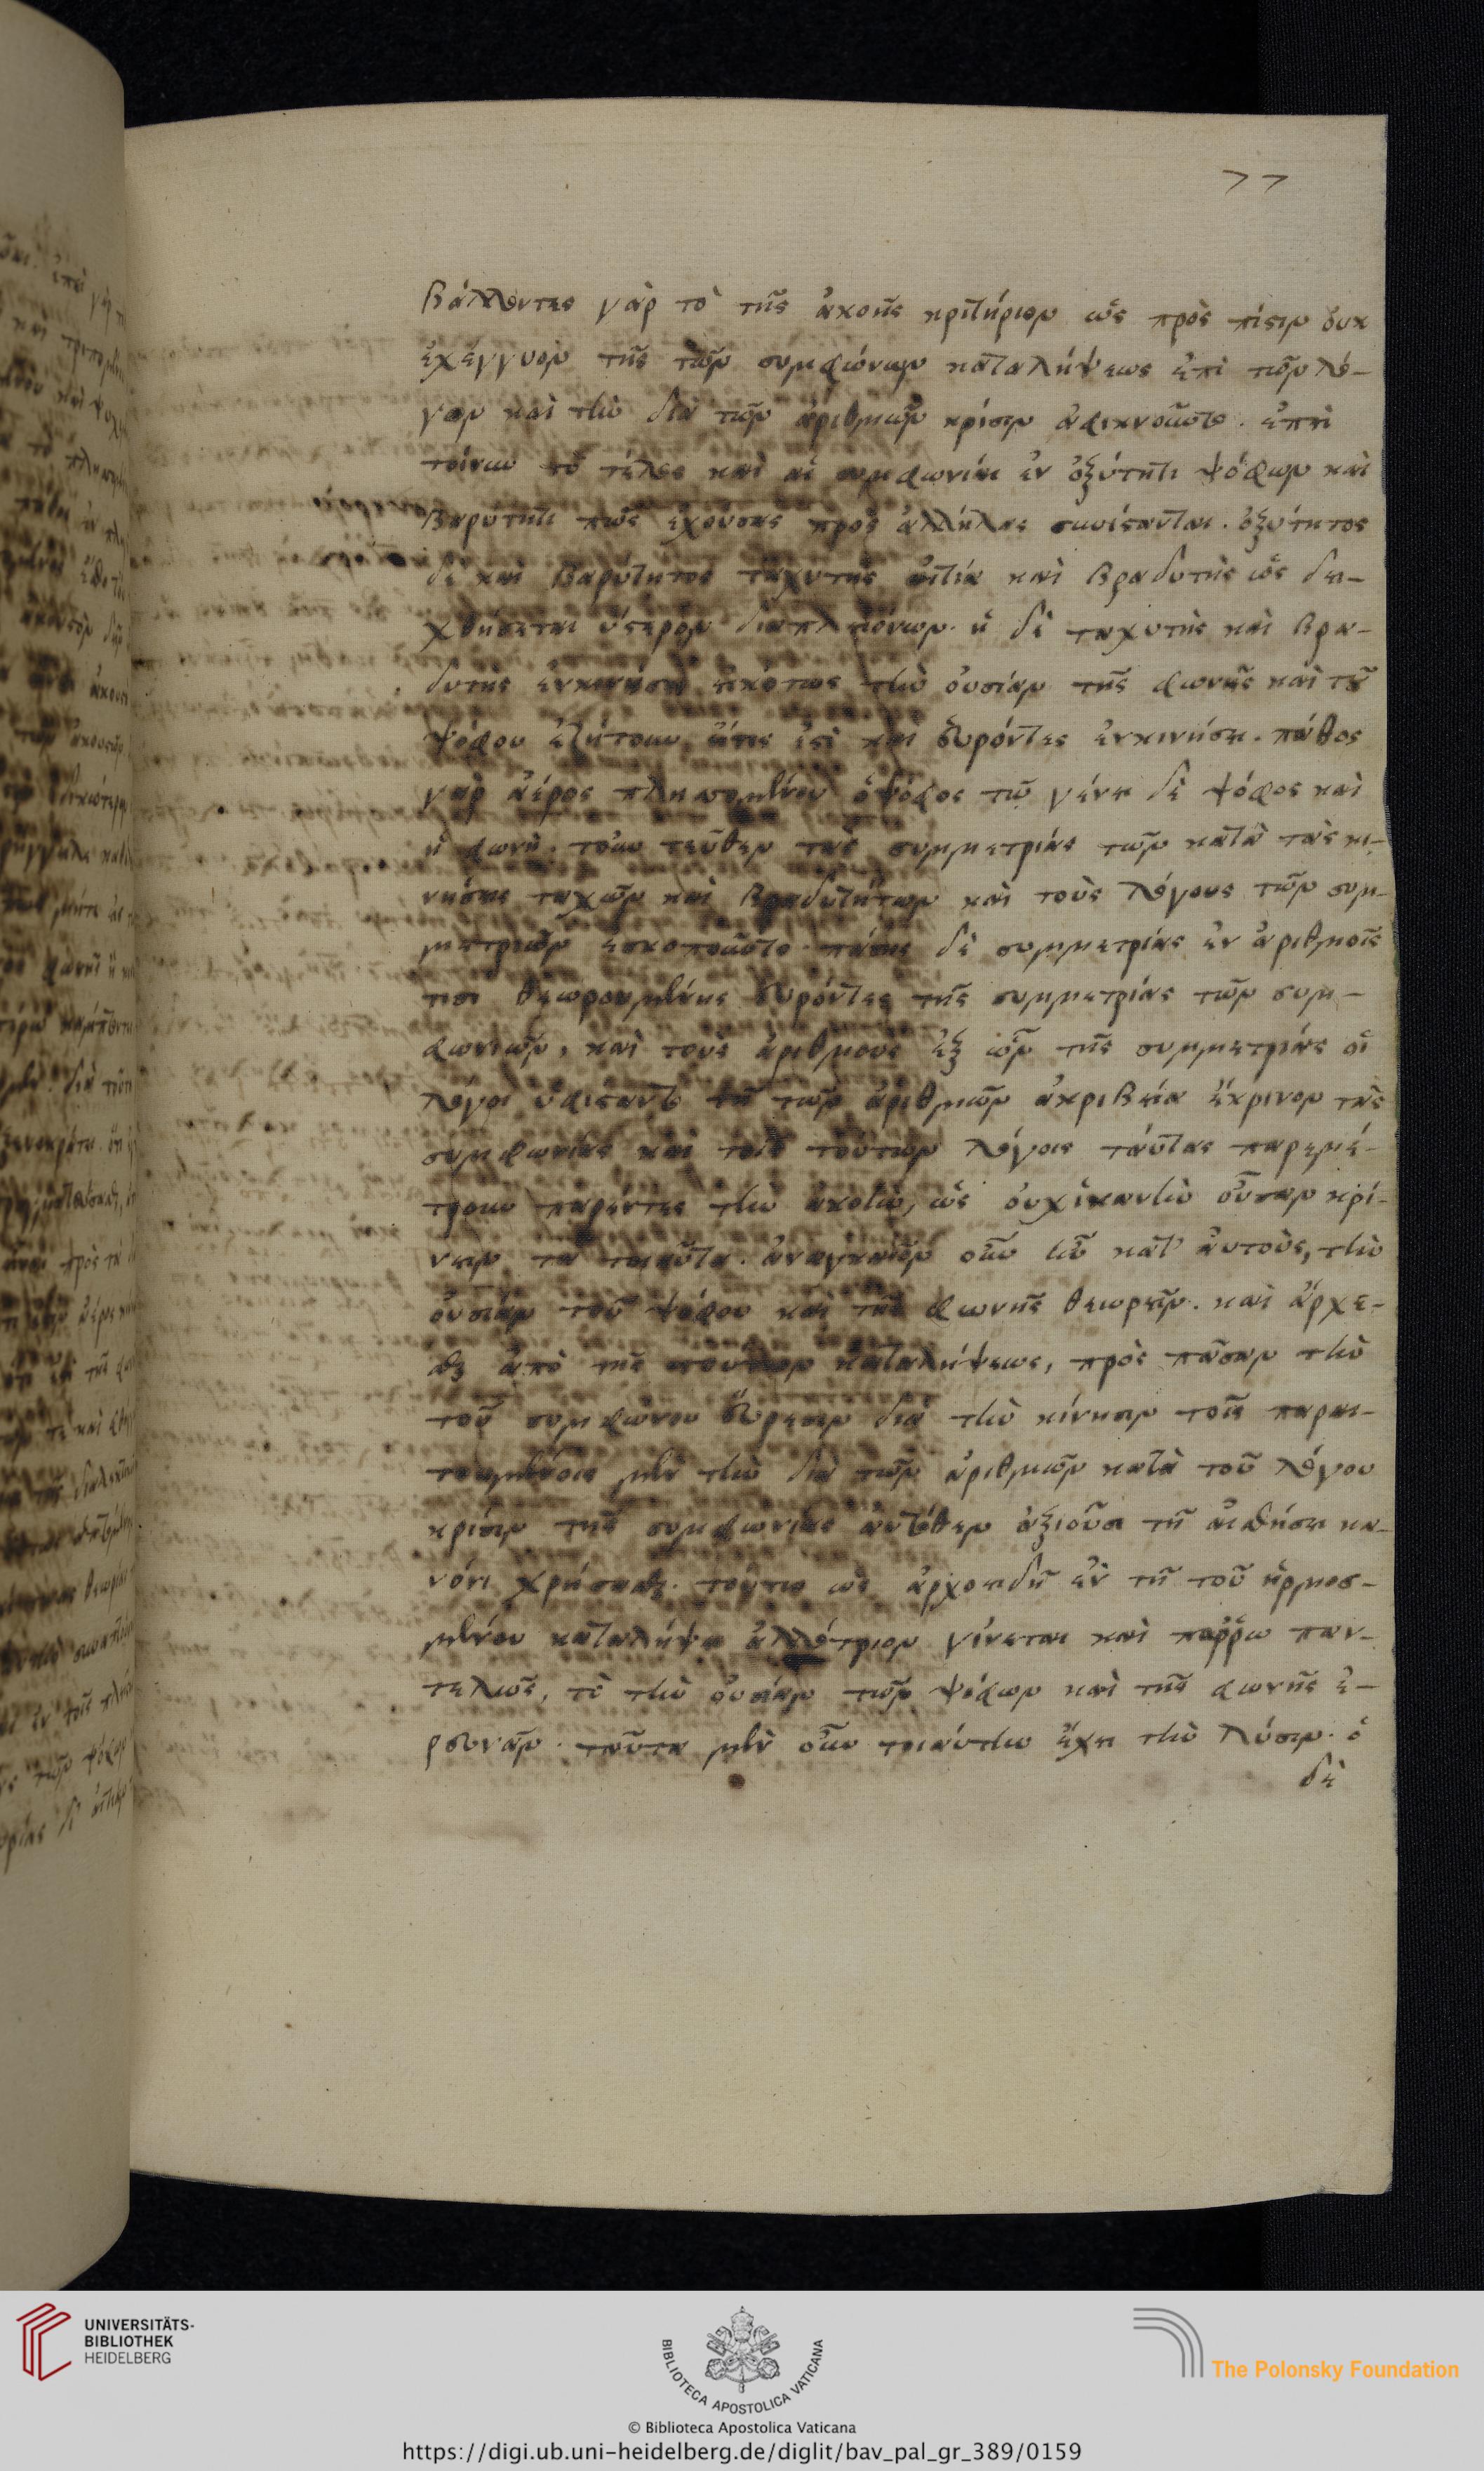 77
βάλλοντες γὰρ τὸ τῆς ἀκοῆς κριτήριον ὡς πρὸς πίστιν οὐκ
ἐχέγγυον τῆς τῶν συμφώνων καταλήψεως ἐπὶ τῶν λό-
γον καὶ τὴν διὰ τῶν ἀριθμῶν κρίσιν ἀφικνοῦντο. ἐπεὶ
τοίνυν τὸ τέλος καὶ αἱ συμφωνίαι ἐν ὀξύτητι ψόφων καὶ
βαρύτητι πῶς ἐχούσαις πρὸς ἀλλήλας συνίστανται. ὀξύτητος
δὲ καὶ βαρύτητος ταχυτὴς αἰτία καὶ βραδυτὴς ὡς δει-
χθήσεται ὕστερον διαπλειόνων. ἡ δὲ ταχυτὴς καὶ βρα-
δυτὴς ἐνκινήσει εἰκότως τὴν οὐσίαν τῆς φωνῆς καὶ τοῦ
ψόφου ἐζήτουν ἥτις ἐστὶ καὶ εὑρόντες ἐνκινήσει. πάθος
γὰρ ἀέρος πλησσομένου ὁ ψόφος τῷ γένει δὲ ψόφος καὶ
ἡ φωνή. τοὐντεῦθεν τὰς συμμετρίας τῶν κατὰ τὰς κι-
νήσεις ταχῶν καὶ βραδυτήτων καὶ τοὺς λόγους τῶν συμ-
μετριῶν ἐσκοποῦντο. πάσης δὲ συμμετρίας ἐν ἀριθμοῖς
τισι θεωρουμένης εὑρόντες τῆς συμμετρίας τῶν συμ-
φωνιῶν, καὶ τοὺς ἀριθμοὺς ἐξ ὧν τῆς συμμετρίας οἱ
λόγοι ὑφίσταντο τῇ τῶν ἀριθμῶν ἀκριβείᾳ ἔκρινον τὰς
συμφωνίας καὶ τοῖς τούτων λόγοις ταύτας παρεμέ-
τρουν παρέντες τὴν ἀκοὴν, ὡς οὐχἱκανὴν οὖσαν κρί-
νειν τὰ τοιαῦτα. ἀναγκαῖον οὖν ἦν κατ' αὐτοὺς, τὴν
οὐσίαν τοῦ ψόφου καὶ τῆς φωνῆς θεωρεῖν. καὶ ἄρχε-
σθαι ἀπὸ τῆς τούτων καταλήψεως, πρὸς πᾶσαν τὴν
τοῦ συμφώνου εὕρεσιν διὰ τὴν κίνησιν τοῖς παραι-
τουμένοις μὲν τὴν διὰ τῶν ἀριθμῶν κατὰ τοῦ λόγου
κρίσιν τῆς συμφωνίας αὐτόθεν ἀξιοῦσι τῇ αἰσθήσει κα-
νόνι χρήσασθαι. τούτοις ὡς ἀρχοειδῆ ἐν τῇ τοῦ ἡρμοσ-
μένου καταλήψει ἀλλότριον γίνεται καὶ πόῤῥω παν-
τελῶς, τὸ τὴν οὐσίαν τῶν ψόφων καὶ τῆς φωνῆς ἐ-
ρευνᾶν. ταῦτα μὲν οὖν τοιαύτην ἔχει τὴν λύσιν. ὁ
δὲ
UNIVERSITÄTS-
BIBLIOTHEK
HEIDELBERG
BIBLIOTECA APOSTOLICA VATICANA
The Polonsky Foundation
© Biblioteca Apostolica Vaticana
https://digi.ub.uni-heidelberg.de/diglit/bav_pal_gr_389/0159